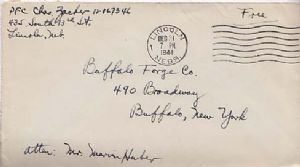 PFC Chas. Zacher 12067346
435 South 13th St.
Lincoln, Neb.
Free
LINCOLN
DEC 21
7 PM
1944
NEBR.
Buffalo Forge Co.
490 Broadway
Buffalo, New York
Atten: Mr. Marin Huber